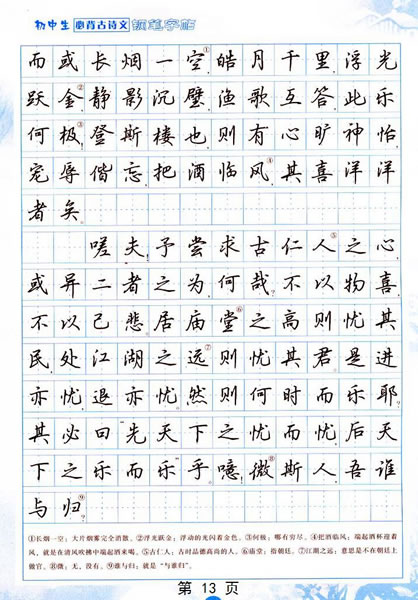 初中生 必背古诗文 钢笔字帖
而或长烟一空，①皓月千里，浮光
跃金，②静影沉璧，渔歌互答，此乐
何极！③登斯楼也，则有心旷神怡，
宠辱偕忘，把酒临风，④其喜洋洋
者矣。
嗟夫！予尝求古仁人⑤之心，
或异二者之为，何哉？不以物喜，
不以己悲；居庙堂⑥之高则忧其
民；处江湖之远⑦则忧其君。是进
亦忧，退亦忧。然则何时而乐耶？
其必曰“先天下之忧而忧，后天
下之乐而乐”乎。噫！微⑧斯人，吾谁
与归⑨？
①长烟一空：大片烟雾完全消散。②浮光跃金：浮动的光闪着金色。③何极：哪有穷尽。④把酒临风：端起酒杯迎着
风，就是在清风吹拂中端起酒来喝。⑤古仁人：古时品德高尚的人。⑥庙堂：指朝廷。⑦江湖之远：意思是不在朝廷上
做官。⑧微：无，没有。⑨谁与归：就是“与谁归”。
第 13 页